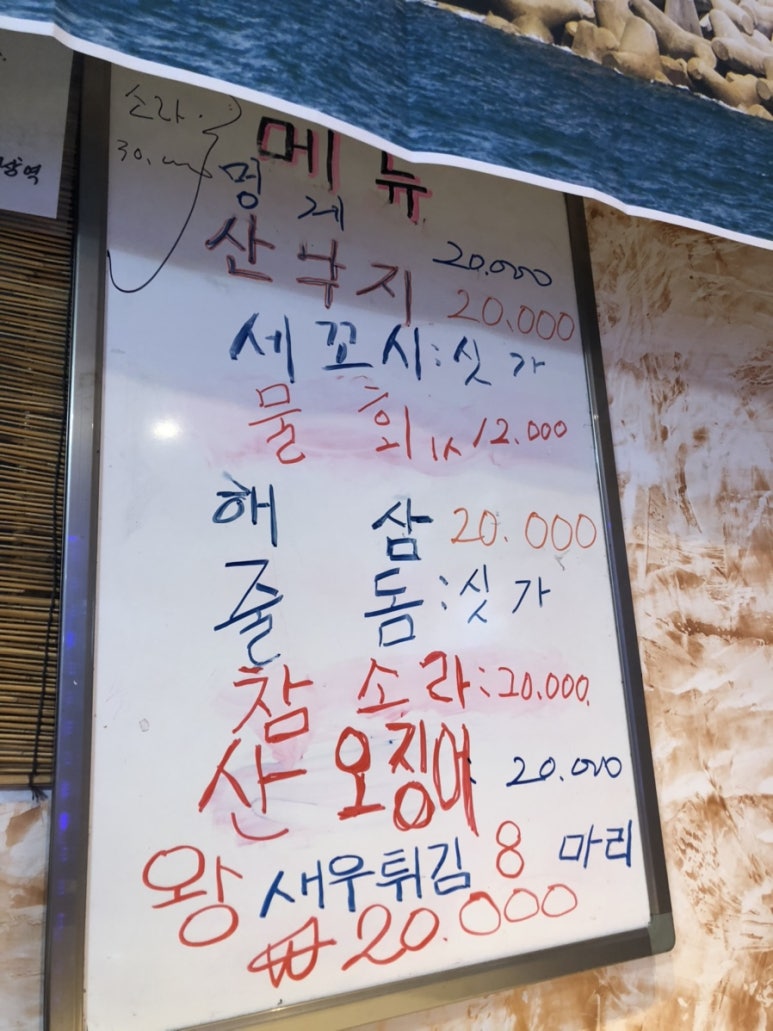 소라
30,000
메뉴
멍게 20.000
산낙지 20.000
세꼬시:싯가
물회 1人 12.000
해삼 20.000
줄돔:싯가
참소라:20.000
산오징어 20.000
왕새우튀김 8마리
₩20.000